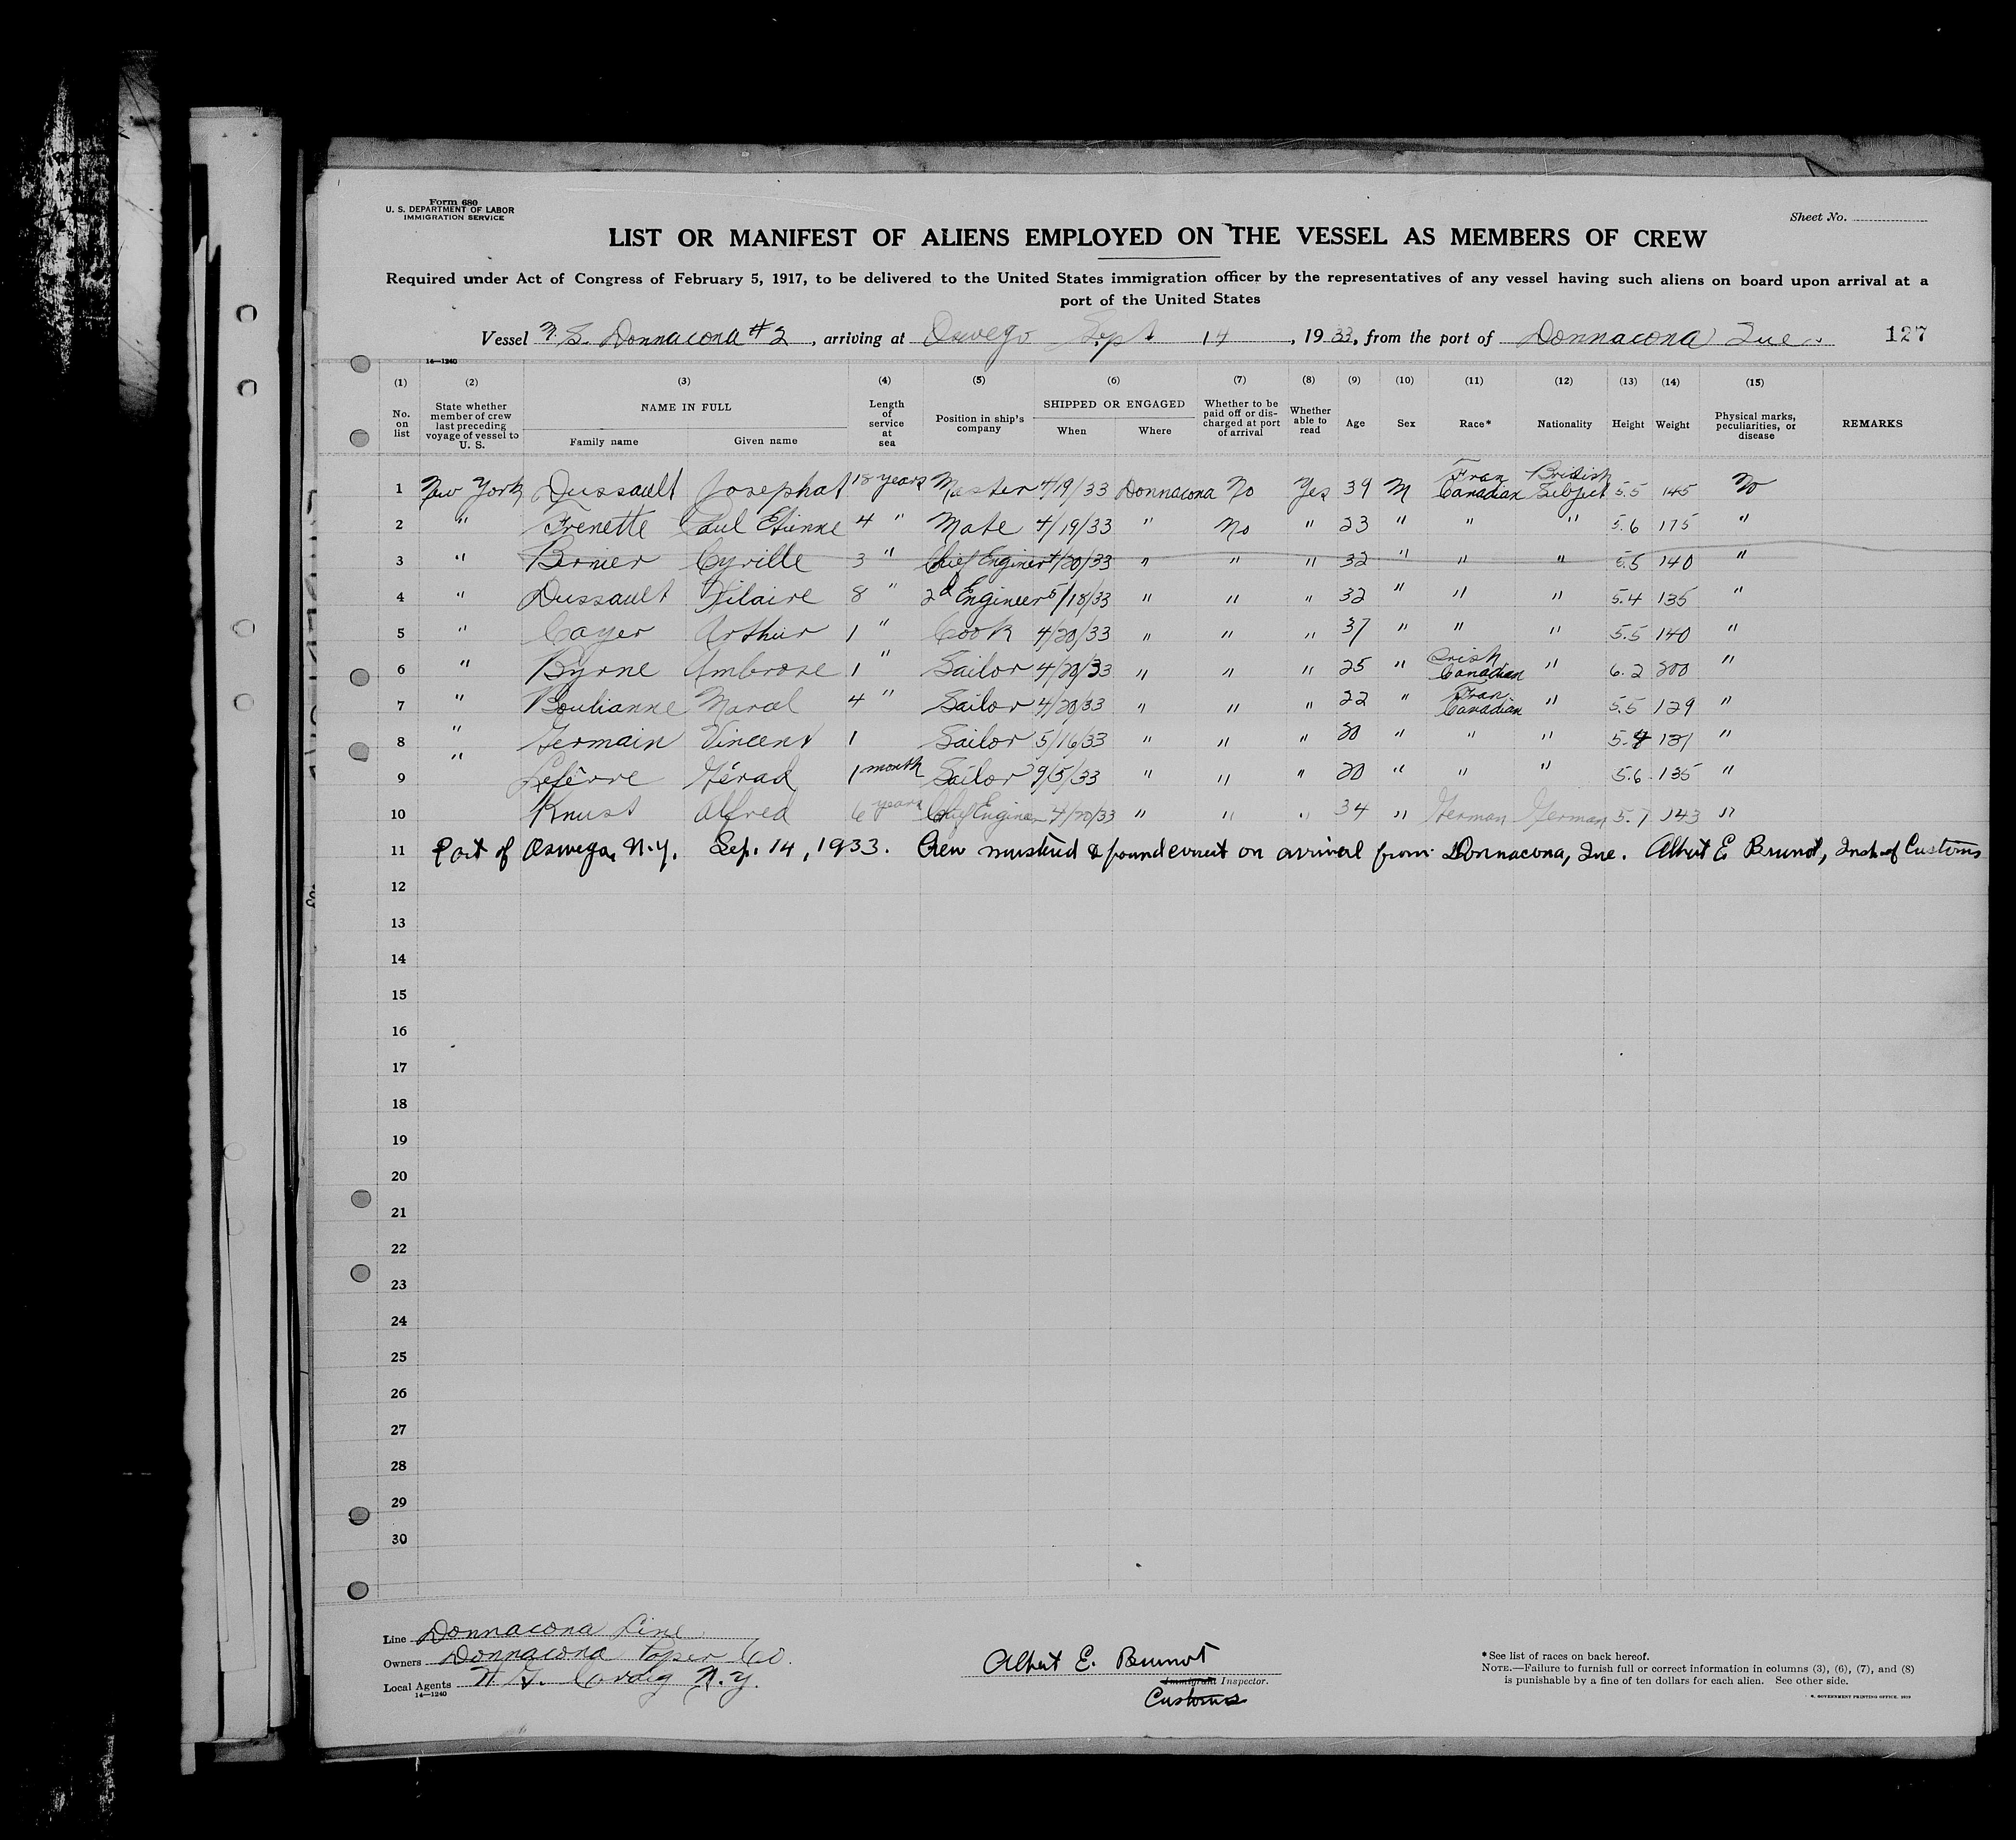 Form 680
U. S. DEPARTMENT OF LABOR
IMMIGRATION SERVICE
Sheet No.
LIST OR MANIFEST OF ALIENS EMPLOYED ON THE VESSEL AS MEMBERS OF CREW
Required under Act of Congress of February 5, 1917, to be delivered to the United States immigration officer by the representatives of any vessel having such aliens on board upon arrival at a
port of the United States
Vessel M. S. Donnacona #2, arriving at Oswego Sept 14, 1933, from the port of Donnacona Que. 127
14—1240
(1) (2) (3) (4) (5) (6) (7) (8) (9) (10) (11) (12) (13) (14) (15)
No. on list State whether member of crew last preceding voyage of vessel to U. S. NAME IN FULL Family name Given name Length of service at sea Position in ship's company SHIPPED OR ENGAGED When Where Whether to be paid off or discharged at port of arrival Whether able to read Age Sex Race* Nationality Height Weight Physical marks, peculiarities, or disease REMARKS
1 New York Dussault Josephat 18 years Master 4/19/33 Donnacona No Yes 39 M Fran Canadian British Subject 5.5 145 No
2 " Frenette Paul Etienne 4 " Mate 4/19/33 " No " 23 " " " 5.6 175 "
3 " Bernier Cyrille 3 " Chief Enginer 4/20/33 " " " 32 " " " 5.5 140 "
4 " Dussault Hilaire 8 " 2d Engineer 5/18/33 " " " 32 " " " 5.4 135 "
5 " Cayer Arthur 1 " Cook 4/20/33 " " " 37 " " " 5.5 140 "
6 " Byrne Ambrose 1 " Sailor 4/20/33 " " " 25 " Irish Canadian " 6.2 200 "
7 " Boulianne Marcel 4 " Sailor 4/20/33 " " " 22 " Fran Canadian " 5.5 129 "
8 " Germain Vincent 1 Sailor 5/16/33 " " " 20 " " " "
9 " Gérad 1 month Sailor 9/5/33 " " " 20 " " " 5.6 135 "
10 Knust Alfred 6 years Chief Enginer 4/20/33 " " " 34 " German German 5.7 143 "
11 Port of Oswego, N.Y. Sep. 14, 1933. Crew mustered & found correct on arrival from Donnacona, Que. Albert E Brunot, Insp. of Customs
12
13
14
15
16
17
18
19
20
21
22
23
24
25
26
27
28
29
30
Line Donnacona Line
Owners Donnacona Paper Co.
Local Agents H. G. Craig N.Y.
14—1240
Albert E. Brunot
Immigrant Inspector.
Customs
*See list of races on back hereof.
NOTE.—Failure to furnish full or correct information in columns (3), (6), (7), and (8)
is punishable by a fine of ten dollars for each alien. See other side.